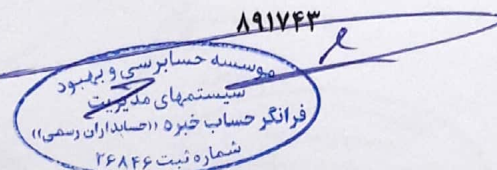 ۸۹۱۷۴۳
موسسه حسابرسی و بهبود
سیستمهای مدیریت
فرانگر حساب خبره ((حسابداران رسمی))
شماره ثبت ۲۶۸۴۶